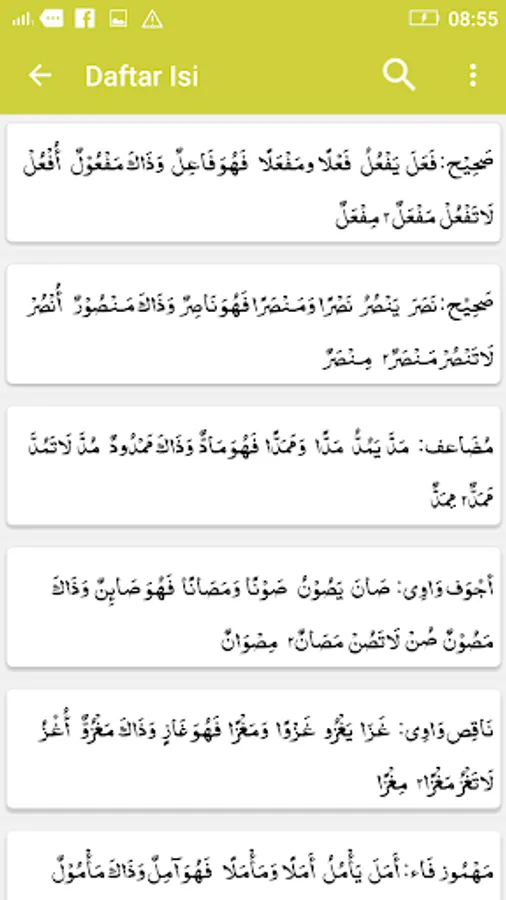 08:55
Daftar Isi
صَحِيْح: فَعَلَ يَفْعُلُ فَعْلًا ومَفْعَلًا فَهُوَ فَاعِلٌ وَذَاكَ مَفْعُوْلٌ أُفْعُلْ
لَاتَفْعُلْ مَفْعَلٌ٢ مِفْعَلٌ
صَحِيْح: نَصَرَ يَنْصُرُ نَصْرًا وَمَنْصَرًا فَهُوَ نَاصِرٌ وَذَاكَ مَنْصُوْرٌ أُنْصُرْ
لَاتَنْصُرْ مَنْصَرٌ٢ مِنْصَرٌ
مُضَاعف: مَدَّ يَمُدُّ مَدًّا وَمَمَدًّا فَهُوَ مَادٌّ وَذَاكَ مَمْدُودٌ مُدَّ لَاتَمُدَّ
مَمَدٌّ٢ مِمَدٌّ
أَجْوَف وَاوِى: صَانَ يَصُوْنُ صَوْنًا وَمَصَانًا فَهُوَ صَايِنٌ وَذَاكَ
مَصُوْنٌ صُنْ لَاتَصُنْ مَصَانٌ٢ مِصْوَانٌ
نَاقِص وَاوِى: غَزَا يَغْزُو غَزْوًا وَمَغْزًا فَهُوَ غَازٍ وَذَاكَ مَغْزُوٌّ أُغْزُ
لَاتَغْزُ مَغْزًا٢ مِغْزًا
مَهْمُوز فَاء: أَمَلَ يَأْمُلُ أَمَلًا وَمَأْمَلًا فَهُوَ آمِلٌ وَذَاكَ مَأْمُوْلٌ